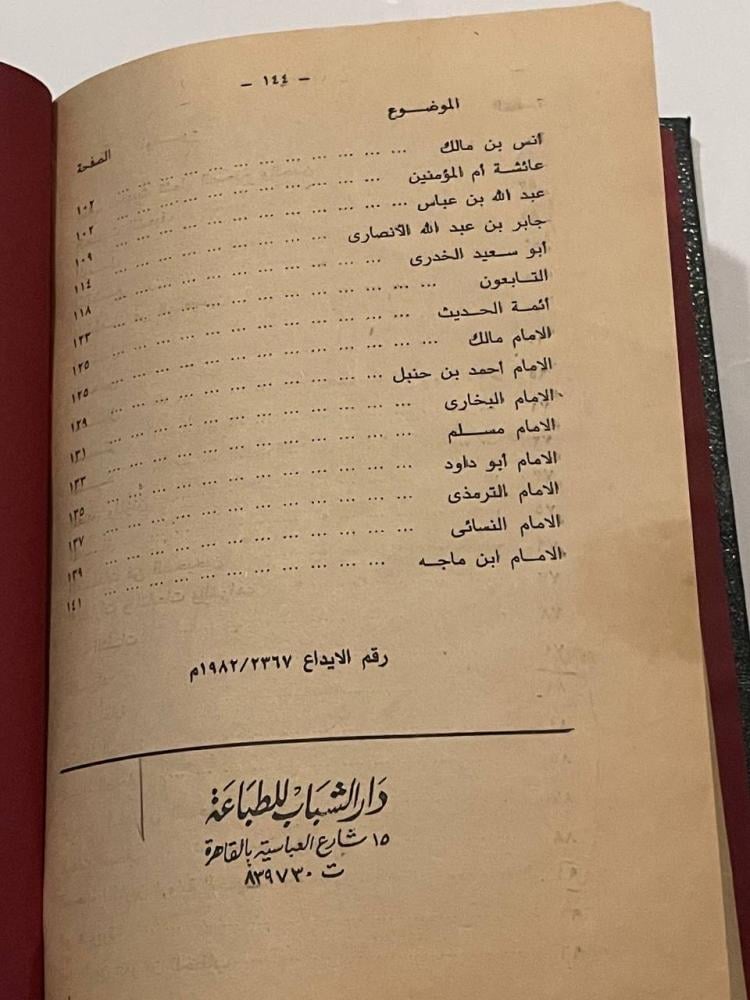 — ١٤٤ —
الموضـــوع الصفحة
أنس بن مالك ... ... ... ... ... ... ... ... ... ... ١٠٢
عائشة أم المؤمنين ... ... ... ... ... ... ... ... ... ١٠٢
عبد الله بن عباس ... ... ... ... ... ... ... ... ... ١٠٩
جابر بن عبد الله الأنصارى ... ... ... ... ... ... ... ١١٤
أبو سعيد الخدرى ... ... ... ... ... ... ... ... ... ١١٨
التـابعون ... ... ... ... ... ... ... ... ... ... ... ١٢٣
أئمـة الحديث ... ... ... ... ... ... ... ... ... ... ١٢٥
الامام مالك ... ... ... ... ... ... ... ... ... ... ... ١٢٥
الامام أحمد بن حنبل ... ... ... ... ... ... ... ... ١٢٩
الامام البخارى ... ... ... ... ... ... ... ... ... ... ١٣١
الامام مسـلم ... ... ... ... ... ... ... ... ... ... ١٣٣
الامام أبو داود ... ... ... ... ... ... ... ... ... ... ١٣٥
الامام الترمذى ... ... ... ... ... ... ... ... ... ... ١٣٧
الامام النسائى ... ... ... ... ... ... ... ... ... ... ١٣٩
الامـام ابن ماجـه ... ... ... ... ... ... ... ... ... ١٤١
رقم الايداع ١٩٨٢/٢٣٦٧م
دار الشباب للطباعة
١٥ شارع العباسية بالقاهرة
ت ٨٣٩٧٣٠